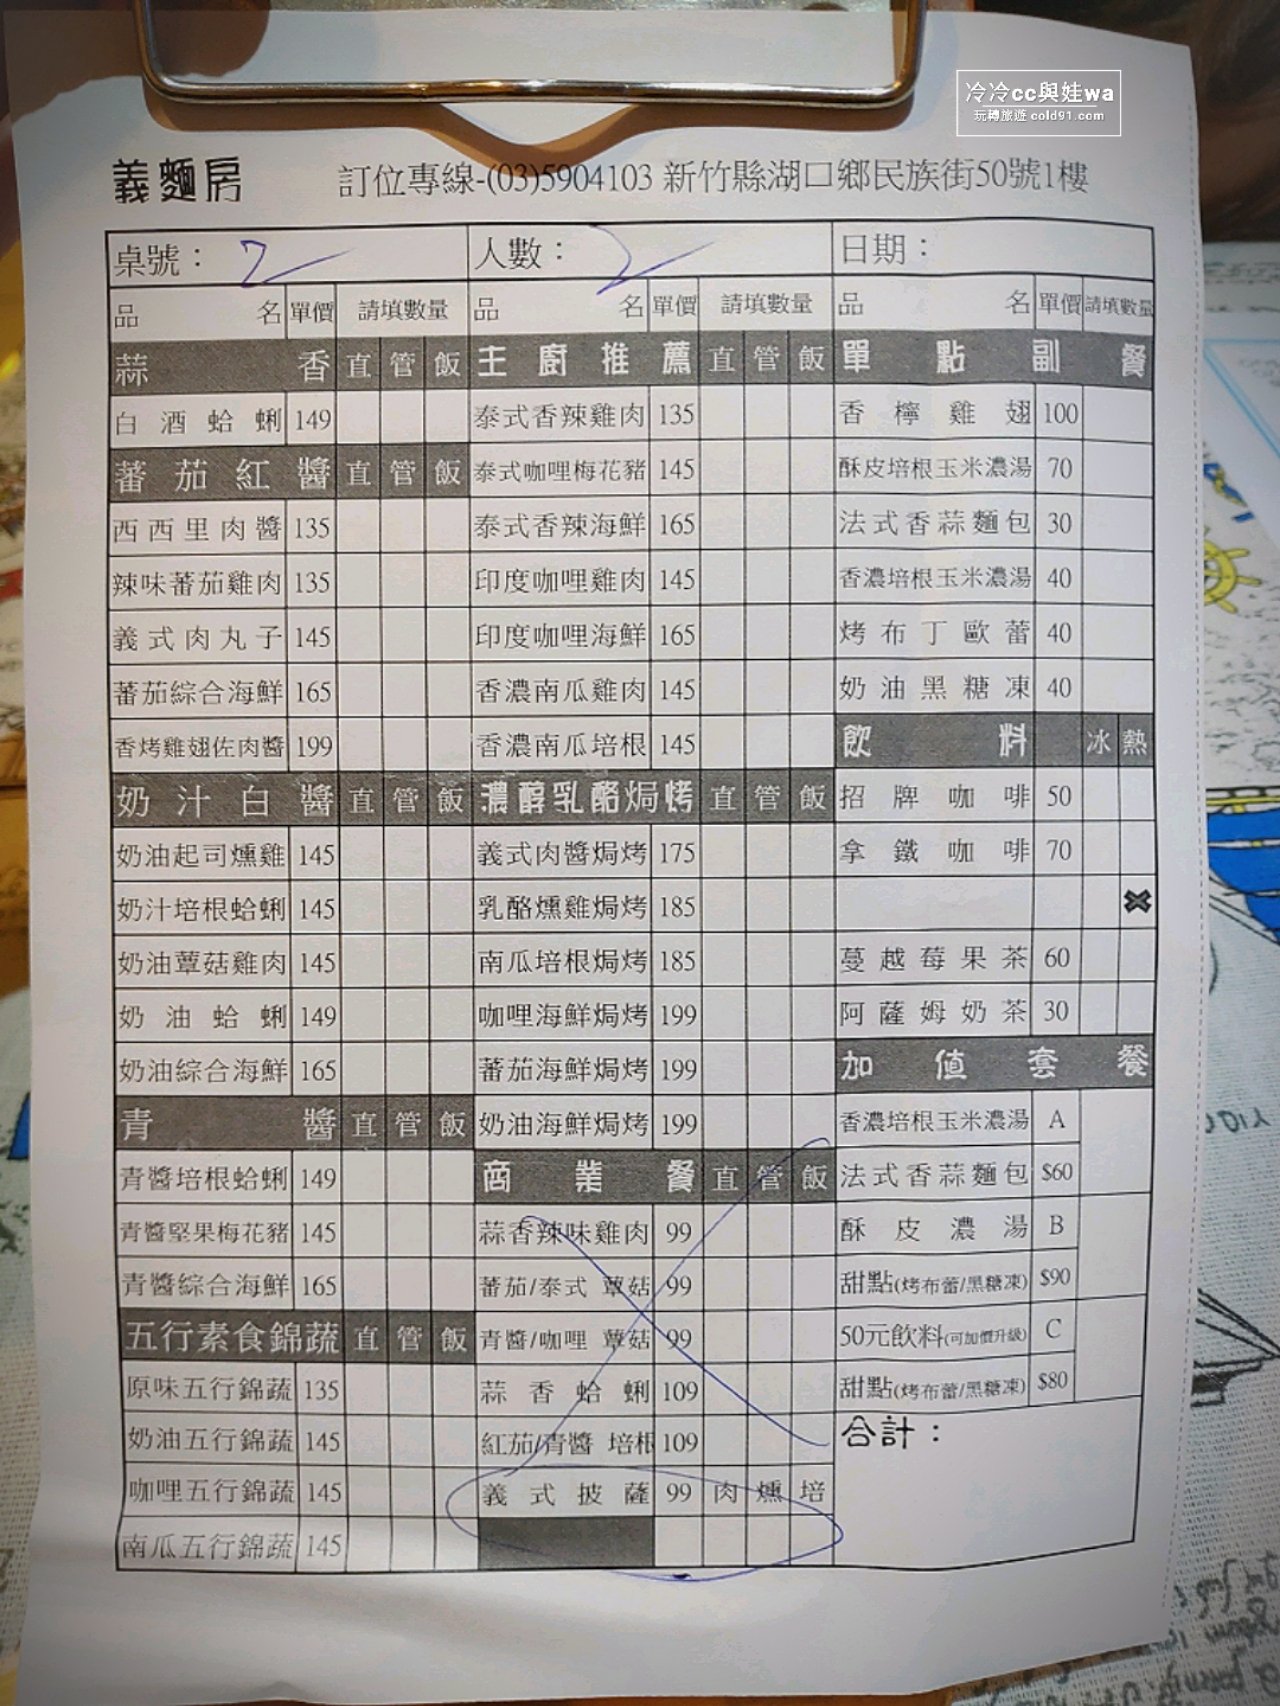 冷冷cc與娃wa
玩轉旅遊 cold91.com
義麵房 訂位專線-(03)5904103 新竹縣湖口鄉民族街50號1樓
桌號：2 人數：2 日期：
品名 單價 請填數量
蒜香 直 管 飯
白酒蛤蜊 149
蕃茄紅醬 直 管 飯
西西里肉醬 135
辣味蕃茄雞肉 135
義式肉丸子 145
蕃茄綜合海鮮 165
香烤雞翅佐肉醬 199
奶汁白醬 直 管 飯
奶油起司燻雞 145
奶汁培根蛤蜊 145
奶油蕈菇雞肉 145
奶油蛤蜊 149
奶油綜合海鮮 165
青醬 直 管 飯
青醬培根蛤蜊 149
青醬堅果梅花豬 145
青醬綜合海鮮 165
五行素食錦蔬 直 管 飯
原味五行錦蔬 135
奶油五行錦蔬 145
咖哩五行錦蔬 145
南瓜五行錦蔬 145
品名 單價 請填數量
主廚推薦 直 管 飯
泰式香辣雞肉 135
泰式咖哩梅花豬 145
泰式香辣海鮮 165
印度咖哩雞肉 145
印度咖哩海鮮 165
香濃南瓜雞肉 145
香濃南瓜培根 145
濃醇乳酪焗烤 直 管 飯
義式肉醬焗烤 175
乳酪燻雞焗烤 185
南瓜培根焗烤 185
咖哩海鮮焗烤 199
蕃茄海鮮焗烤 199
奶油海鮮焗烤 199
商業餐 直 管 飯
蒜香辣味雞肉 99
蕃茄/泰式 蕈菇 99
青醬/咖哩 蕈菇 99
蒜香蛤蜊 109
紅茄/青醬 培根 109
義式披薩 99 肉 燻 培
品名 單價 請填數量
單點副餐
香檸雞翅 100
酥皮培根玉米濃湯 70
法式香蒜麵包 30
香濃培根玉米濃湯 40
烤布丁歐蕾 40
奶油黑糖凍 40
飲料 冰 熱
招牌咖啡 50
拿鐵咖啡 70
✖
蔓越莓果茶 60
阿薩姆奶茶 30
加值套餐
香濃培根玉米濃湯 A
法式香蒜麵包 $60
酥皮濃湯 B
甜點(烤布蕾/黑糖凍) $90
50元飲料(可加價升級) C
甜點(烤布蕾/黑糖凍) $80
合計：